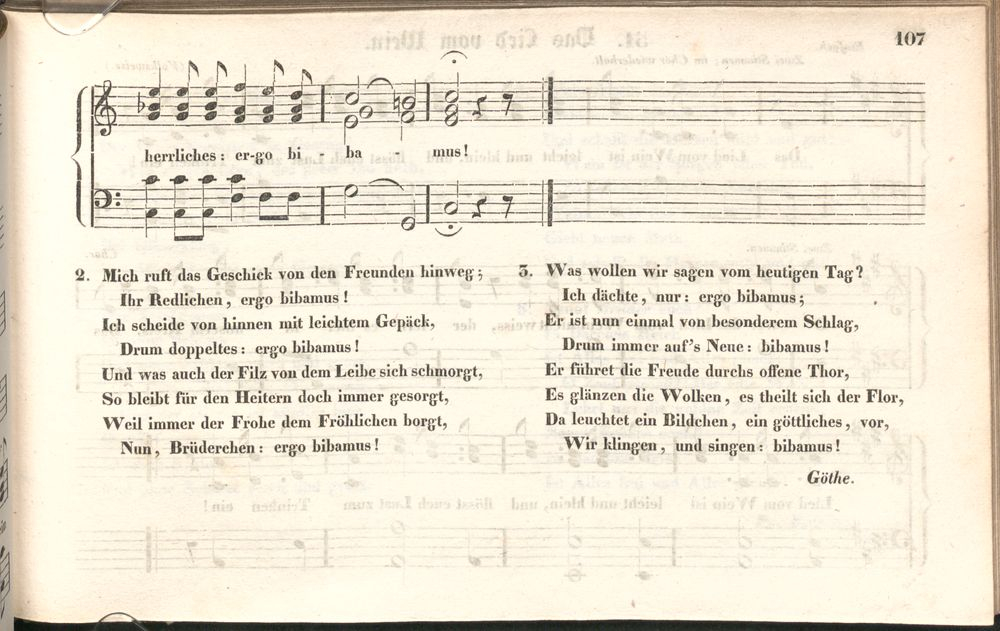 107
herrliches : er-go bi - ba - mus!
2. Mich ruft das Geschick von den Freunden hinweg;
Ihr Redlichen, ergo bibamus!
Ich scheide von hinnen mit leichtem Gepäck,
Drum doppeltes: ergo bibamus!
Und was auch der Filz von dem Leibe sich schmorgt,
So bleibt für den Heitern doch immer gesorgt,
Weil immer der Frohe dem Fröhlichen borgt,
Nun, Brüderchen: ergo bibamus!
3. Was wollen wir sagen vom heutigen Tag?
Ich dächte, nur: ergo bibamus;
Er ist nun einmal von besonderem Schlag,
Drum immer auf's Neue: bibamus!
Er führet die Freude durchs offene Thor,
Es glänzen die Wolken, es theilt sich der Flor,
Da leuchtet ein Bildchen, ein göttliches, vor,
Wir klingen, und singen: bibamus!
Göthe.